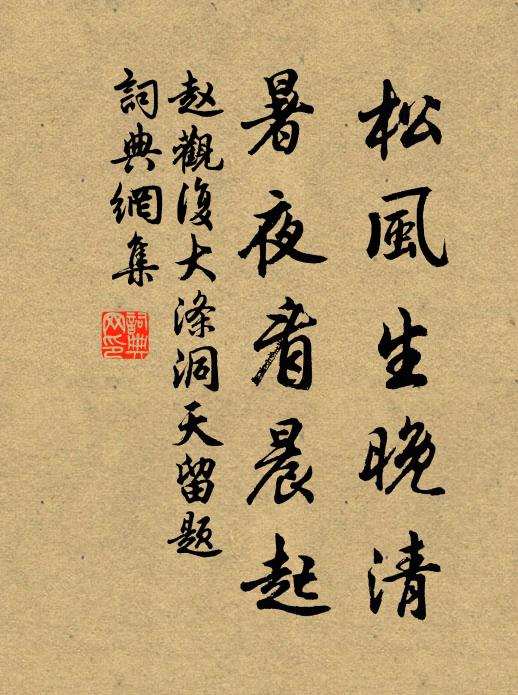 松風生晚清
暑夜看晨起
赵觀復大滌洞天留题
詞典網集
詞典
网印